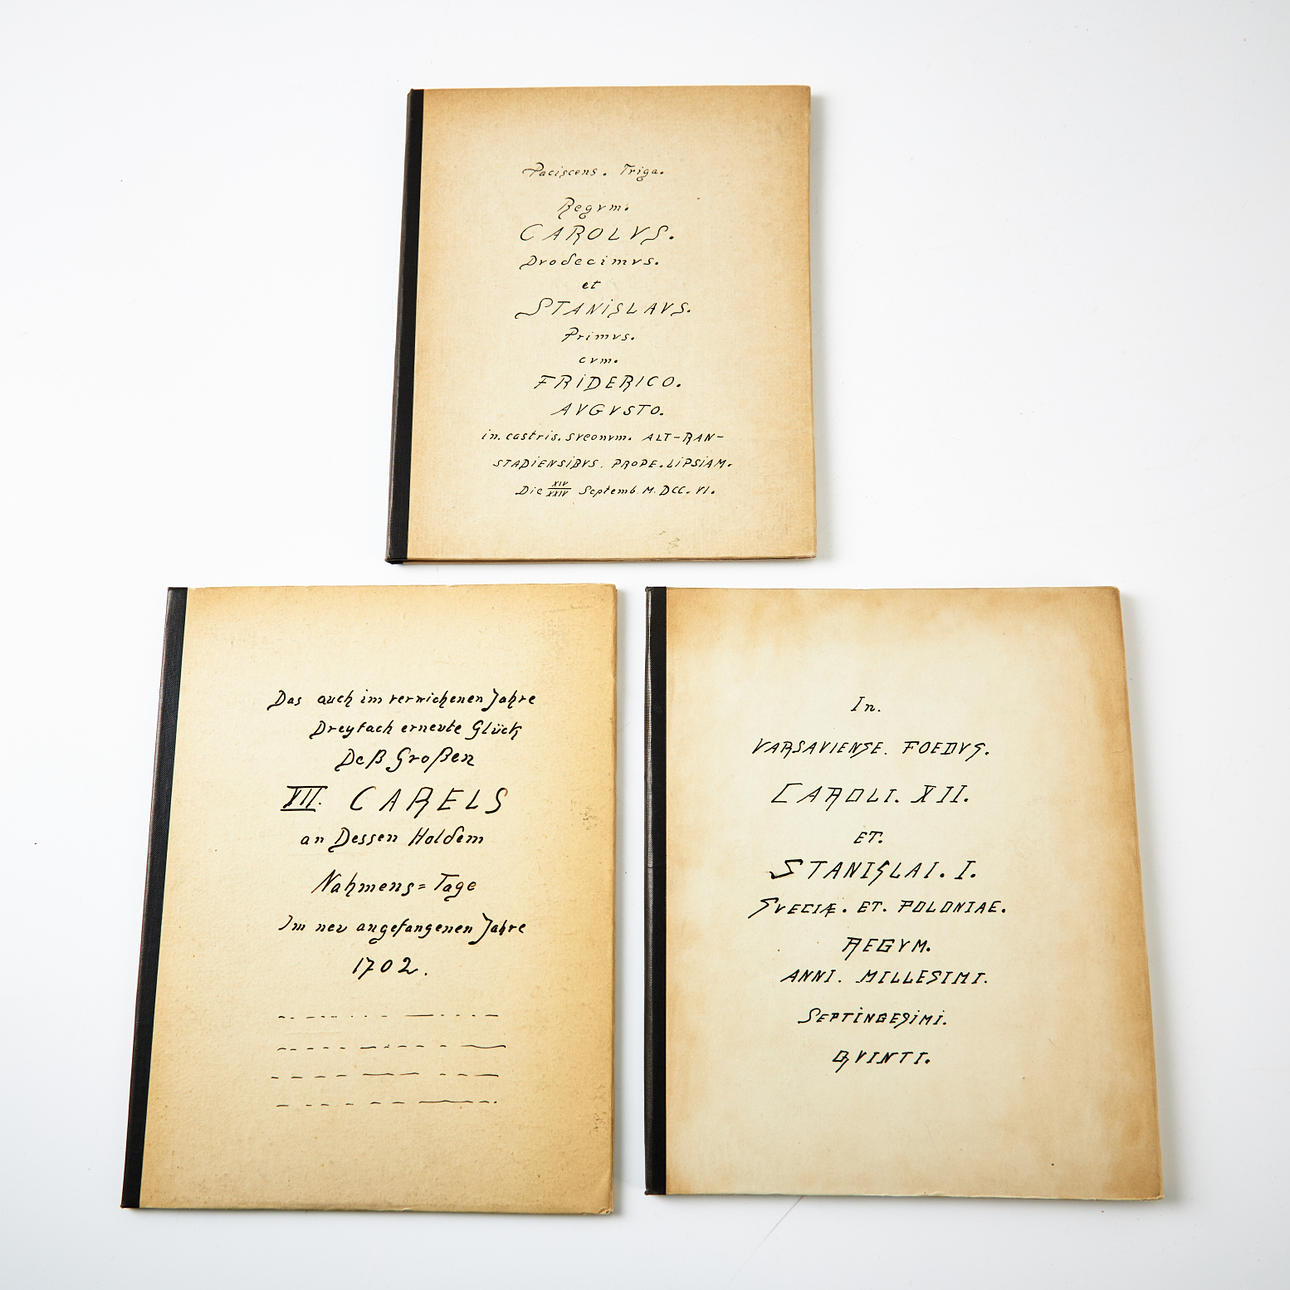 Paciscens. Triga.
Regvm.
CAROLVS.
Dvodecimvs.
et
STANISLAVS.
Primvs.
cvm.
FRIDERICO.
AVGVSTO.
in. castris. sveonvm. ALT-RAN-
STADIENSIBVS. PROPE. LIPSIAM.
Die XIV/XXIV Septemb. M. DCC. VI.
Das auch im verwichenen Jahre
Dreyfach erneute Glück
Deß Großen
XII. CARELS
an Dessen Holdem
Nahmens=Tage
Im neu angefangenen Jahre
1702.
In.
VARSAVIENSE. FOEDVS.
CAROLI. XII.
ET.
STANISLAI. I.
SVECIÆ. ET. POLONIAE.
REGVM.
ANNI. MILLESIMI.
SEPTINGESIMI.
QVINTI.